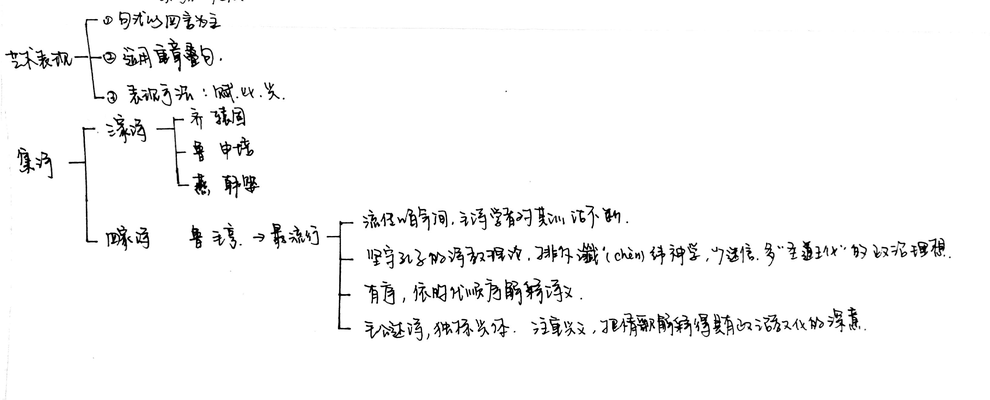 ① 句式以四言为主
艺术表现 ② 运用重章叠句.
③ 表现手法：赋.比.兴.
三家诗 齐 辕固
集诗 鲁 申培
燕 韩婴
四家诗 鲁 毛亨. → 最流行 流传时间,毛诗学者对其训诂不断.
坚守孔子的诗教理论,排斥谶(chèn)纬神学,少迷信.多"王道王化"的政治理想.
有序,依时代顺序解释诗义.
毛诗,独标兴体. 注重兴义,把情歌解释得具有政治教化的深意.